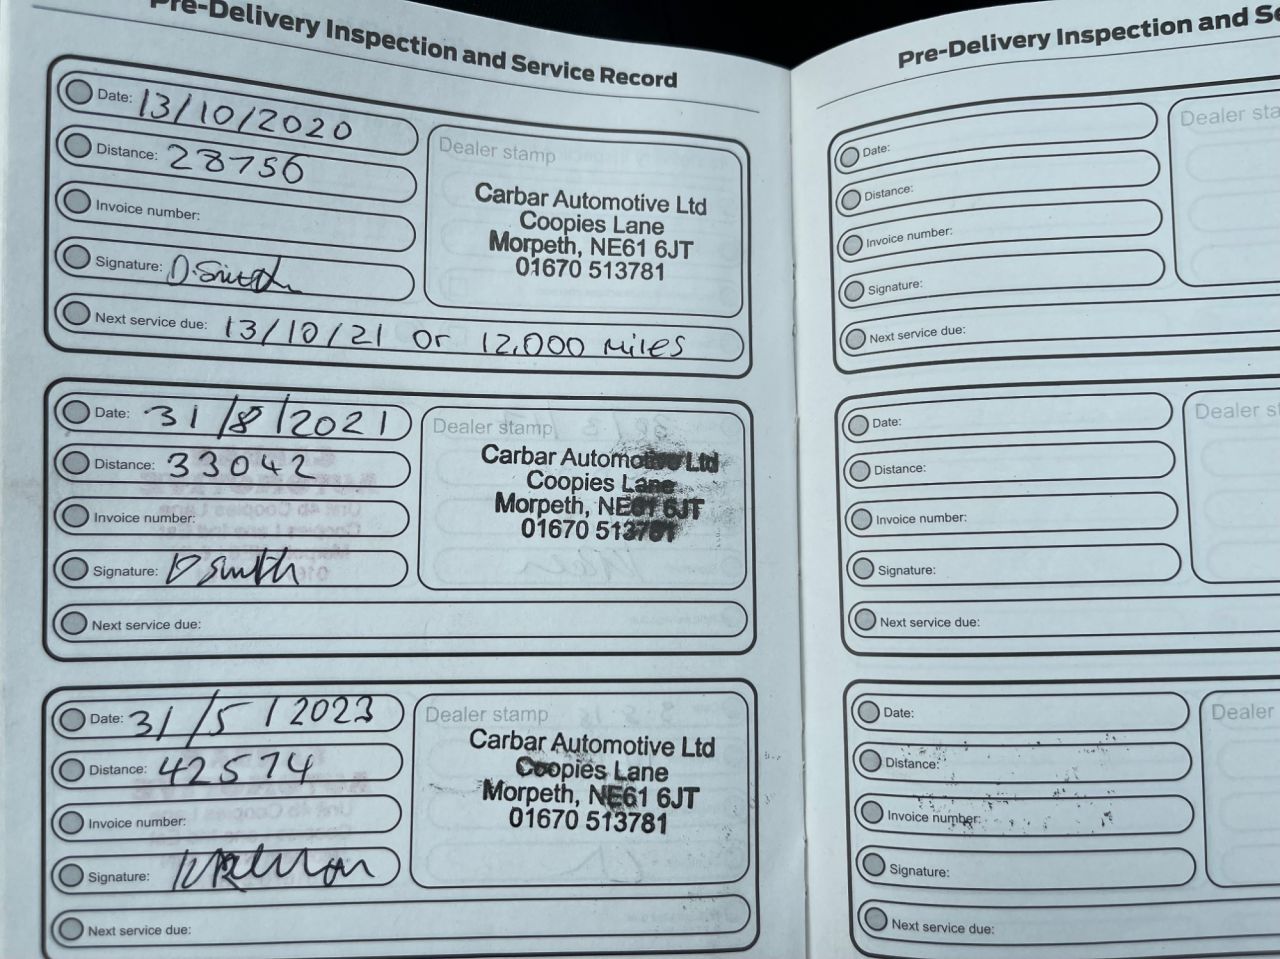 Pre-Delivery Inspection and Service Record
Date: 13/10/2020
Distance: 28756
Invoice number:
Signature: D. Smith
Next service due: 13/10/21 or 12,000 miles
Dealer stamp
Carbar Automotive Ltd
Coopies Lane
Morpeth, NE61 6JT
01670 513781
Date: 31/8/2021
Distance: 33042
Invoice number:
Signature: D Smith
Next service due:
Dealer stamp
Carbar Automotive Ltd
Coopies Lane
Morpeth, NE61 6JT
01670 513781
Date: 31/5/2023
Distance: 42574
Invoice number:
Signature:
Next service due:
Dealer stamp
Carbar Automotive Ltd
Coopies Lane
Morpeth, NE61 6JT
01670 513781
Pre-Delivery Inspection and Se
Date:
Distance:
Invoice number:
Signature:
Next service due:
Dealer sta
Date:
Distance:
Invoice number:
Signature:
Next service due:
Dealer st
Date:
Distance:
Invoice number:
Signature:
Next service due:
Dealer